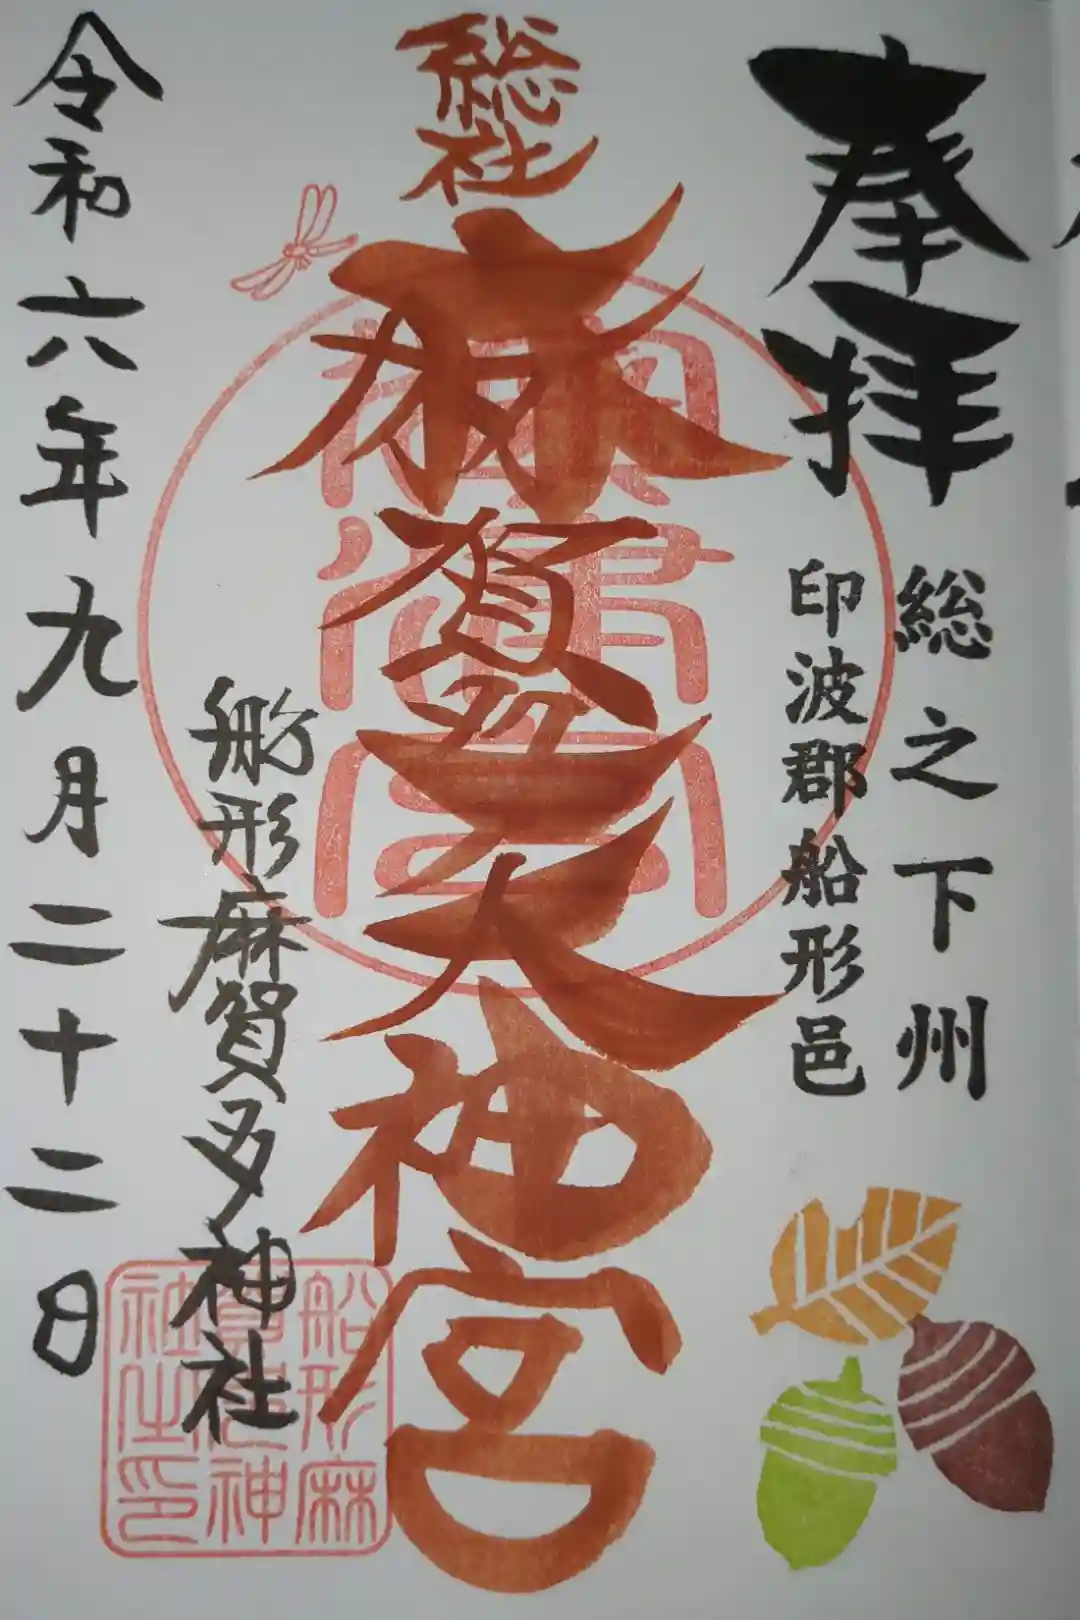 奉拝
総之下州
印波郡船形邑
総社
麻賀多大神宮
船形麻賀多神社
船形麻
賀多神
社之印
令和六年九月二十二日